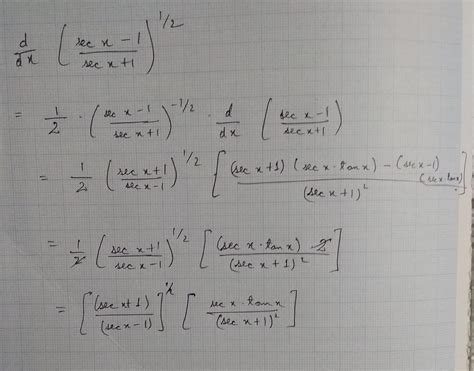 d/dx ( (sec x − 1)/(sec x + 1) )^1/2
= 1/2 · ( (sec x − 1)/(sec x + 1) )^−1/2 · d/dx ( (sec x − 1)/(sec x + 1) )
= 1/2 ( (sec x + 1)/(sec x − 1) )^1/2 [ ((sec x + 1) (sec x · tan x) − (sec x − 1) (sec x · tan x))/(sec x + 1)^2 ]
= 1/2 ( (sec x + 1)/(sec x − 1) )^1/2 [ ((sec x · tan x) · 2)/(sec x + 1)^2 ]
= [ (sec x + 1)/(sec x − 1) ]^1/2 [ (sec x · tan x)/(sec x + 1)^2 ]